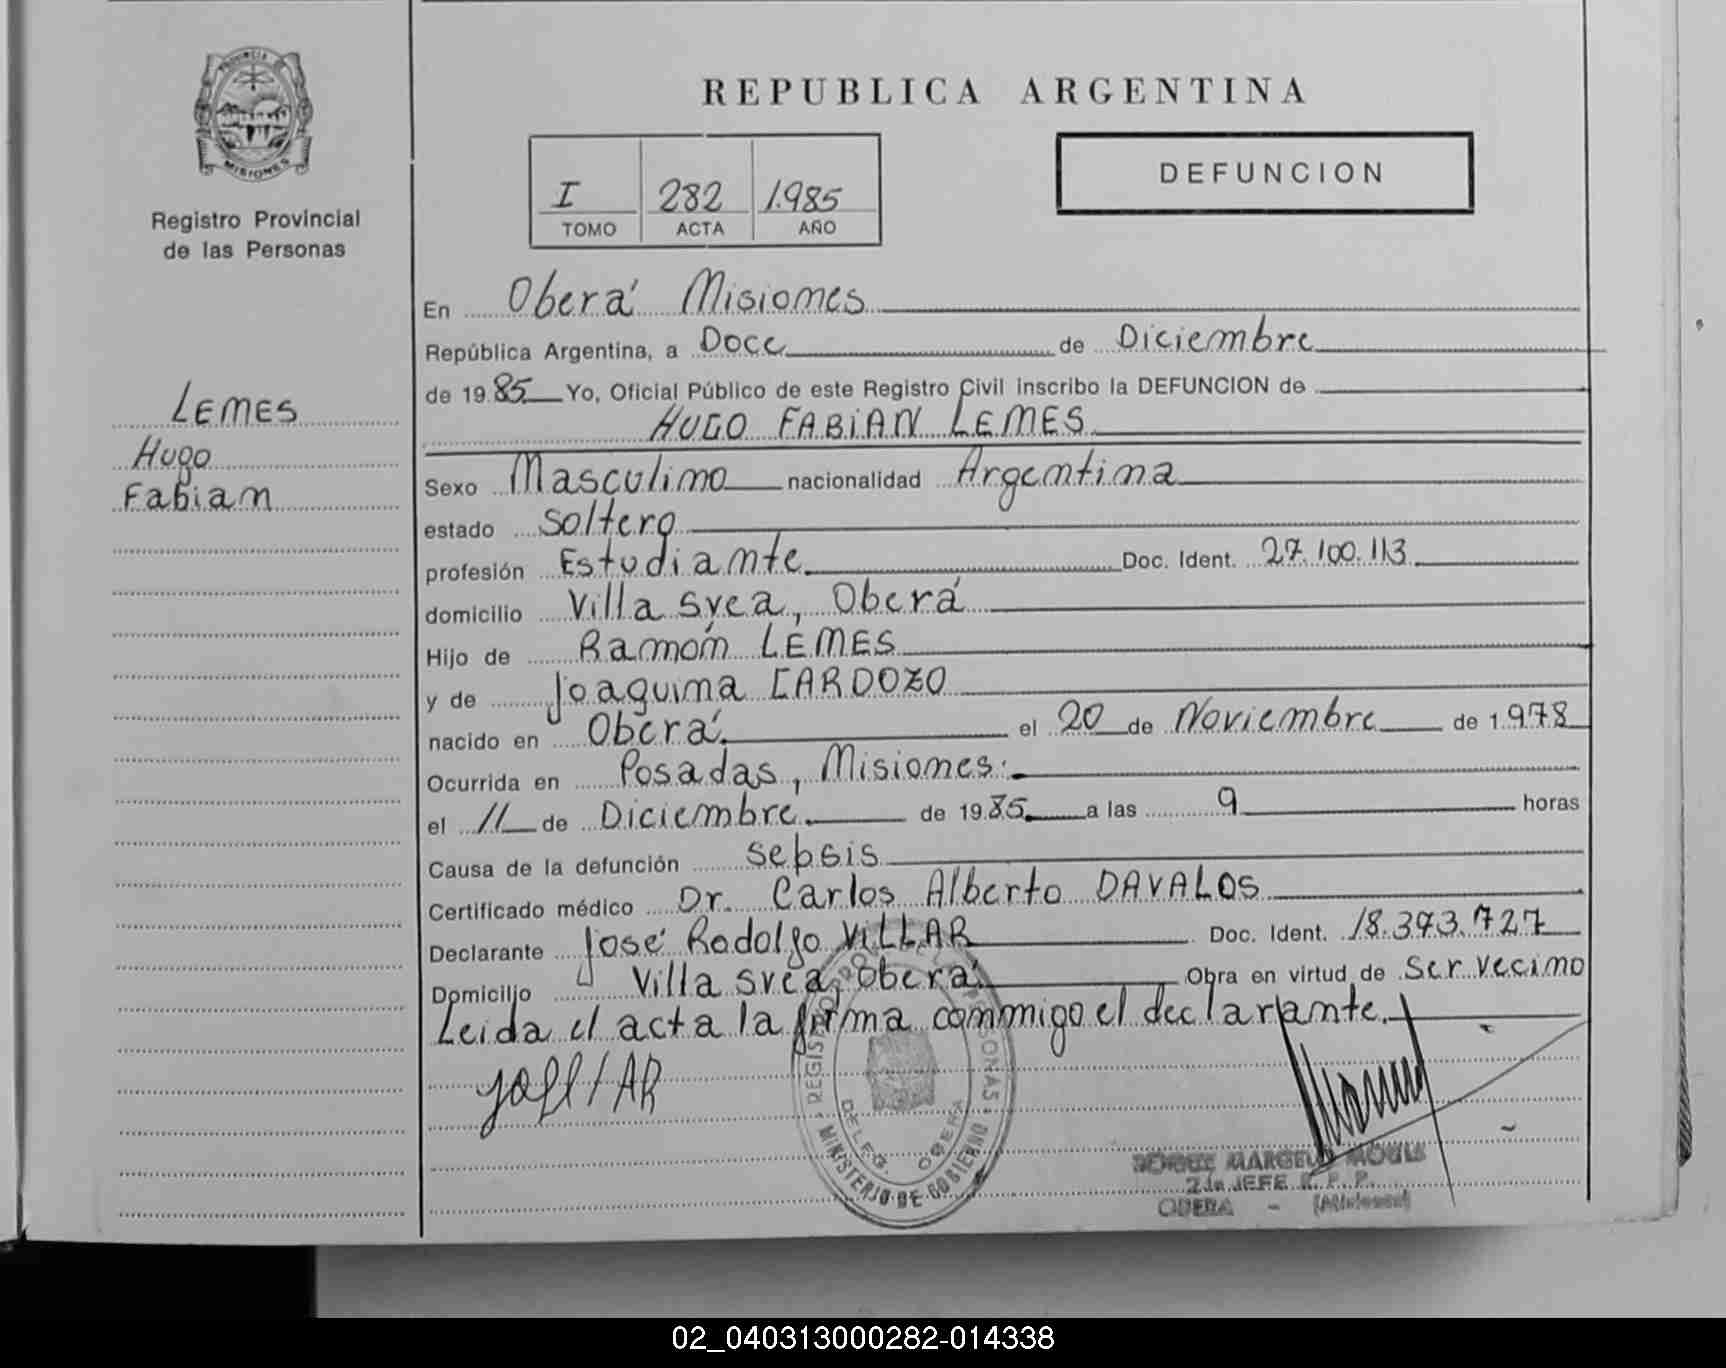 PROVINCIA DE
MISIONES
Registro Provincial
de las Personas
LEMES
Hugo
Fabian
REPUBLICA ARGENTINA
I 282 1.985
TOMO ACTA AÑO
DEFUNCION
En Oberá Misiones
República Argentina, a Doce de Diciembre
de 19 85 Yo, Oficial Público de este Registro Civil inscribo la DEFUNCION de
HUGO FABIAN LEMES
Sexo Masculino nacionalidad Argentina
estado soltero
profesión Estudiante Doc. Ident. 27.100.113
domicilio Villa svea, Oberá
Hijo de Ramón LEMES
y de Joaquina CARDOZO
nacido en Oberá. el 20 de Noviembre de 1.978
Ocurrida en Posadas, Misiones.
el 11 de Diciembre. de 19 85. a las 9 horas
Causa de la defunción sepsis
Certificado médico Dr. Carlos Alberto DAVALOS
Declarante José Rodolfo VILLAR Doc. Ident. 18.393.727
Domicilio Villa svea, Oberá. Obra en virtud de ser vecino
Leida el acta la firma conmigo el declarante.
REGISTRO PROVINCIAL DE LAS PERSONAS
MINISTERIO DE GOBIERNO
DELEG. OBERA
2do JEFE R. P. P.
OBERA - (Misiones)
02_040313000282-014338